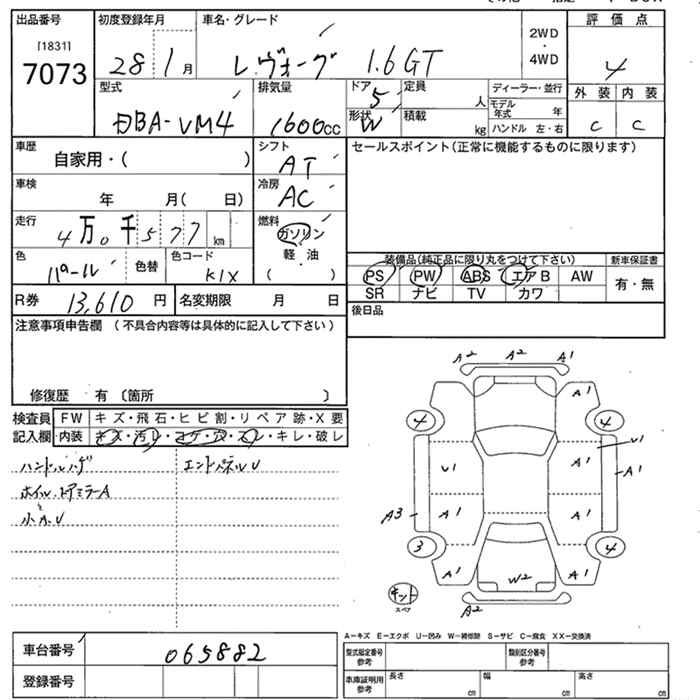 出品番号 初度登録年月 車名・グレード 2WD・4WD 評価点
[1831]
7073 28 1月 レヴォーグ 1.6GT 4
型式 排気量 ドア 定員 人 ディーラー・並行 外装 内装
DBA-VM4 1600cc 5 形状 W 積載 kg モデル年式 年 ハンドル 左・右 C C
車歴 シフト セールスポイント(正常に機能するものに限ります)
自家用・( ) AT
車検 冷房
年 月( 日) AC
走行 燃料
4万0千577km ガソリン
色 色替 色コード 軽・油
パール K1X ( )
装備品(純正品に限り丸をつけて下さい) 新車保証書
PS PW ABS エアB AW 有・無
SR ナビ TV カワ
R券 13,610円 名変期限 月 日 後日品
注意事項申告欄 (不具合内容等は具体的に記入して下さい)
修復歴 有 〔箇所 〕
検査員 FW キズ・飛石・ヒビ割・リペア跡・X要
記入欄 内装 キズ・汚レ・コゲ・穴・スレ・キレ・破レ
ハンドルハゲ エンドパネルU
ホイル、ドアミラーA
小キズU
A2 A2 A1
A1
4 4
U1
U1 A1 A1
A3 A1 A1
3 4
A1 A1
W2
キット
スペア
A2
A-キズ E-エクボ U-凹み W-補修跡 S-サビ C-腐食 XX-交換済
車台番号 065882 型式指定番号 参考 類別区分番号 参考
登録番号 車庫証明用 参考 長さ cm 幅 cm 高さ cm